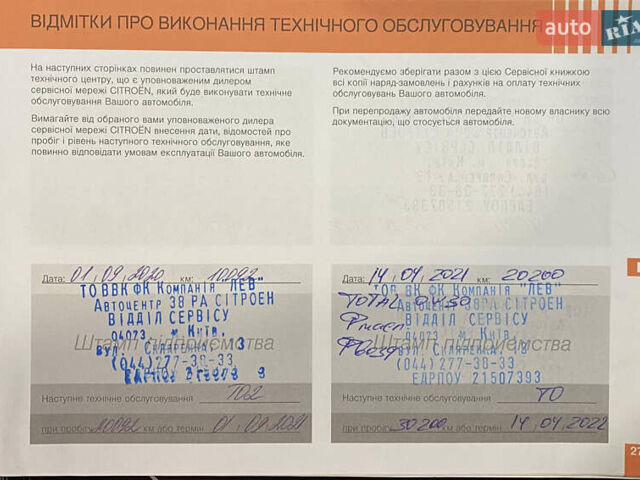 ВІДМІТКИ ПРО ВИКОНАННЯ ТЕХНІЧНОГО ОБСЛУГОВУВАННЯ
auto RIA
На наступних сторінках повинен проставлятися штамп
технічного центру, що є уповноваженим дилером
сервісної мережі CITROËN, який буде виконувати технічне
обслуговування Вашого автомобіля.
Вимагайте від обраного вами уповноваженого дилера
сервісної мережі CITROËN внесення дати, відомостей про
пробіг і рівень наступного технічного обслуговування, яке
повинно відповідати умовам експлуатації Вашого автомобіля.
Рекомендуємо зберігати разом з цією Сервісної книжкою
всі копії наряд-замовлень і рахунків на оплату технічних
обслуговувань Вашого автомобіля.
При перепродажу автомобіля передайте новому власнику всю
документацію, що стосується автомобіля.
Дата: 01,09,2020 км: 10.092
ТОВ ВК ФК Компанія "ЛЕВ"
Автоцентр 38 РА СІТРОЕН
ВІДДІЛ СЕРВІСУ
04073 м Київ,
Штамп підприємства
вул. Скляренка, 3
(044)277-38-33
Наступне технічне обслуговування ТО2
при пробігу 20092 км або термін 01,09,2021
Дата: 14,04,2021 км: 20200
ТОВ ВК ФК Компанія "ЛЕВ"
TOTAL 0W30
Автоцентр 38 РА СІТРОЕН
ВІДДІЛ СЕРВІСУ
04073 м. Київ.
Штамп підприємства
вул. Скляренка.
(044)277-38-33
ЕДРПОУ 21507393
Наступне технічне обслуговування ТО
при пробігу 30200 км або термін 14,04,2022
27